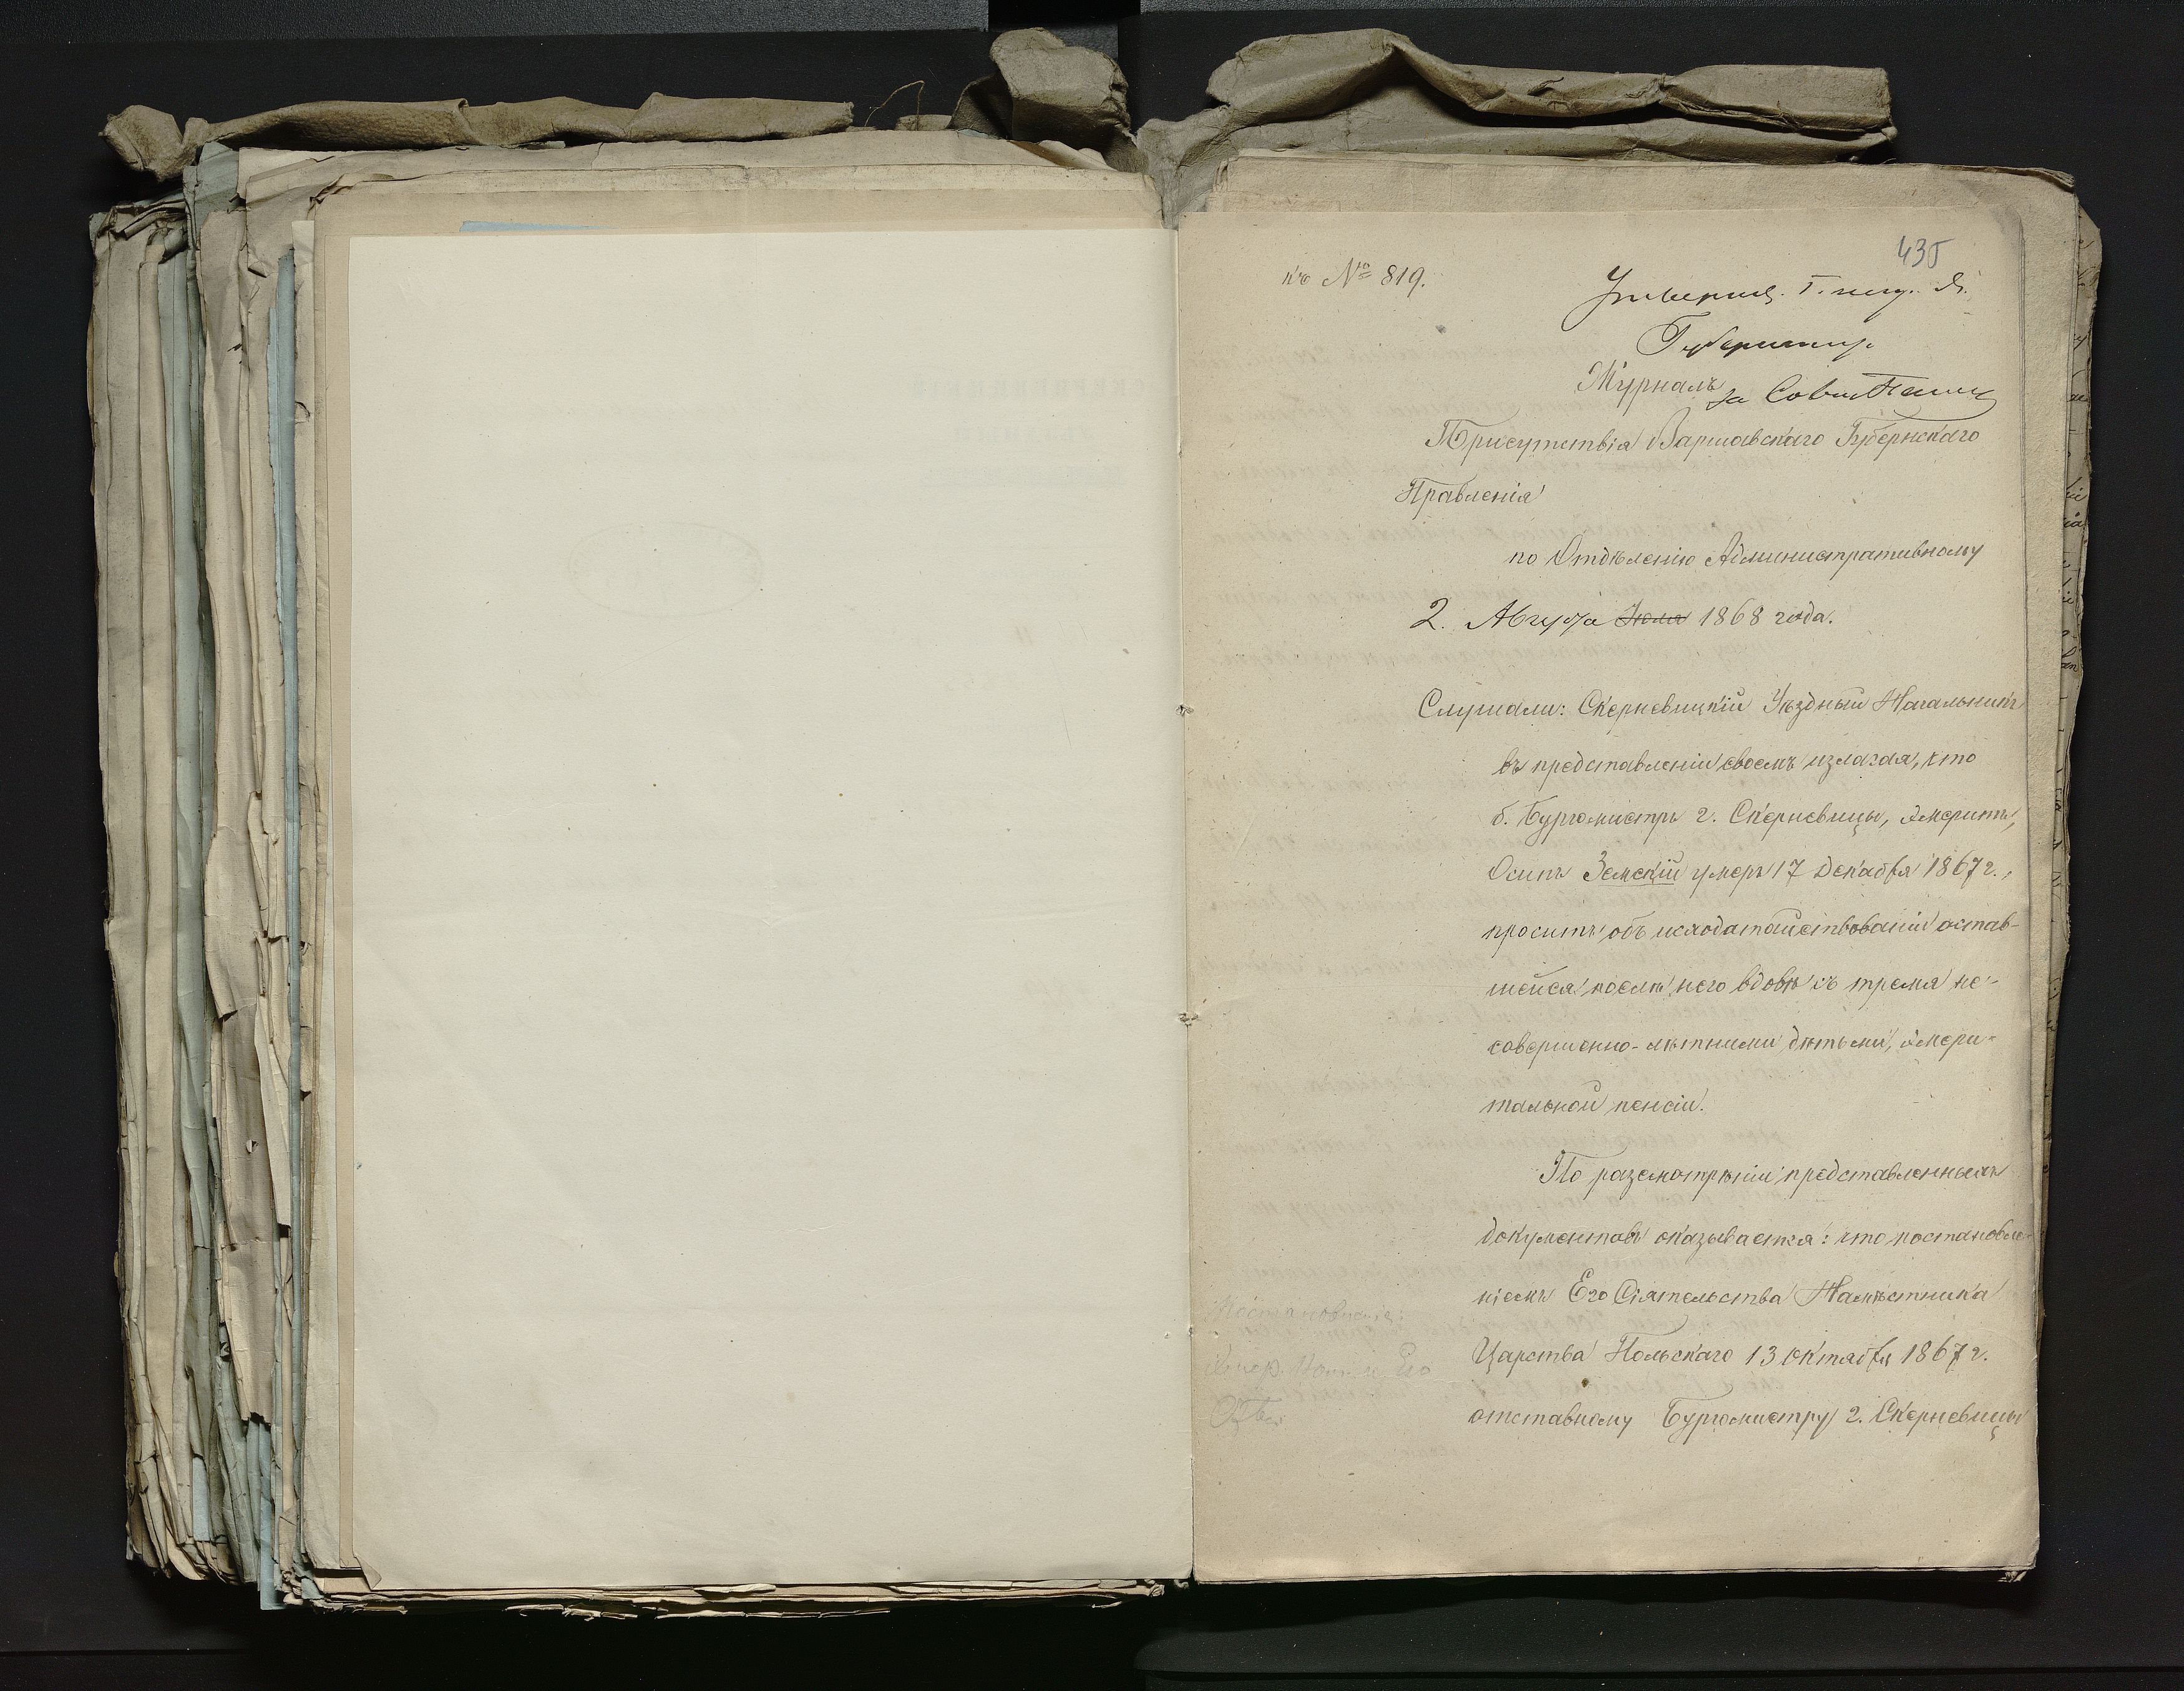 435
къ № 819.
Утвержд. Г. исп. д.
Губернат.
Журналъ
за Совѣтника
Присутствія Варшавскаго Губернскаго
Правленія
по Отдѣленію Административному
2. Августа Іюля 1868 года.
Слушали: Скерневицкій Уѣздный Начальникъ
въ представленіи своемъ излагая, что
б. Бургомистръ г. Скерневицы, эмеритъ,
Осипъ Земскій умеръ 17 Декабря 1867 г.,
проситъ объ исходатайствованіи остав-
шейся послѣ него вдовѣ съ тремя не-
совершенно-лѣтними дѣтьми, эмери-
тальной пенсіи.
По разсмотрѣніи представленныхъ
документовъ оказывается: что постановле-
ніемъ Его Сіятельства Намѣстника
Царства Польскаго 13 Октября 1867 г.
отставному Бургомистру г. Скерневицы
Постановленіе